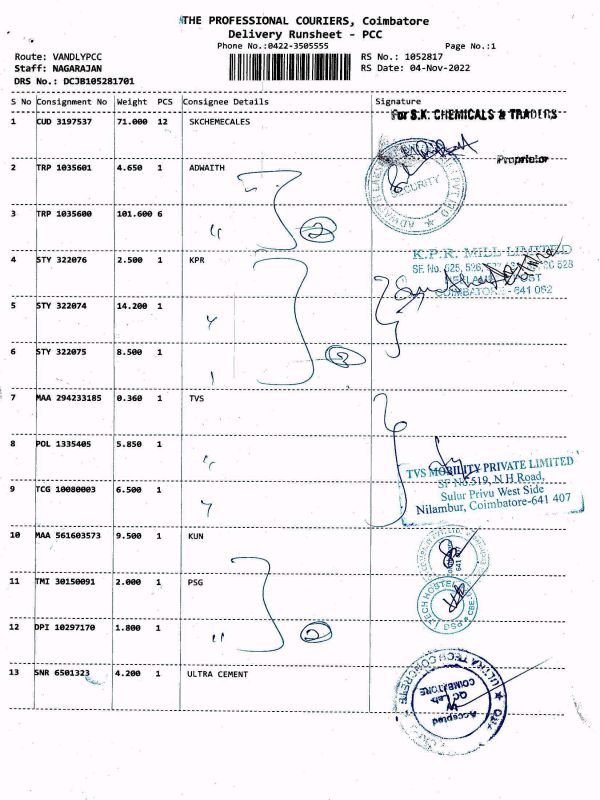 THE PROFESSIONAL COURIERS, Coimbatore
Delivery Runsheet - PCC
Phone No.:0422-3505555 Page No.:1
Route: VANDLYPCC RS No.: 1052817
Staff: NAGARAJAN RS Date: 04-Nov-2022
DRS No.: DCJB105281701
S No Consignment No Weight PCS Consignee Details Signature
For S.K. CHEMICALS & TRADERS
1 CUD 3197537 71.000 12 SKCHEMECALES
Proprietor
2 TRP 1035601 4.650 1 ADWAITH
SECURITY
3 TRP 1035600 101.600 6 " 2
K.P.R. MILL LIMITED
4 STY 322076 2.500 1 KPR
SF. No. 525, 526,
POST
COIMBATORE - 641 062
5 STY 322074 14.200 1 "
6 STY 322075 8.500 1
7 MAA 294233185 0.360 1 TVS
8 POL 1335405 5.850 1 "
TVS MOBILITY PRIVATE LIMITED
SF No.519, N H Road,
9 TCG 10080003 6.500 1 "
Sulur Privu West Side
Nilambur, Coimbatore-641 407
10 MAA 561603573 9.500 1 KUN
11 TMI 30150091 2.000 1 PSG
TECH HOSTEL
12 DPI 10297170 1.800 1 " 2
13 SNR 6501323 4.200 1 ULTRA CEMENT
ULTRA TECH CONCRETE
COIMBATORE
QC Lab
Accepted